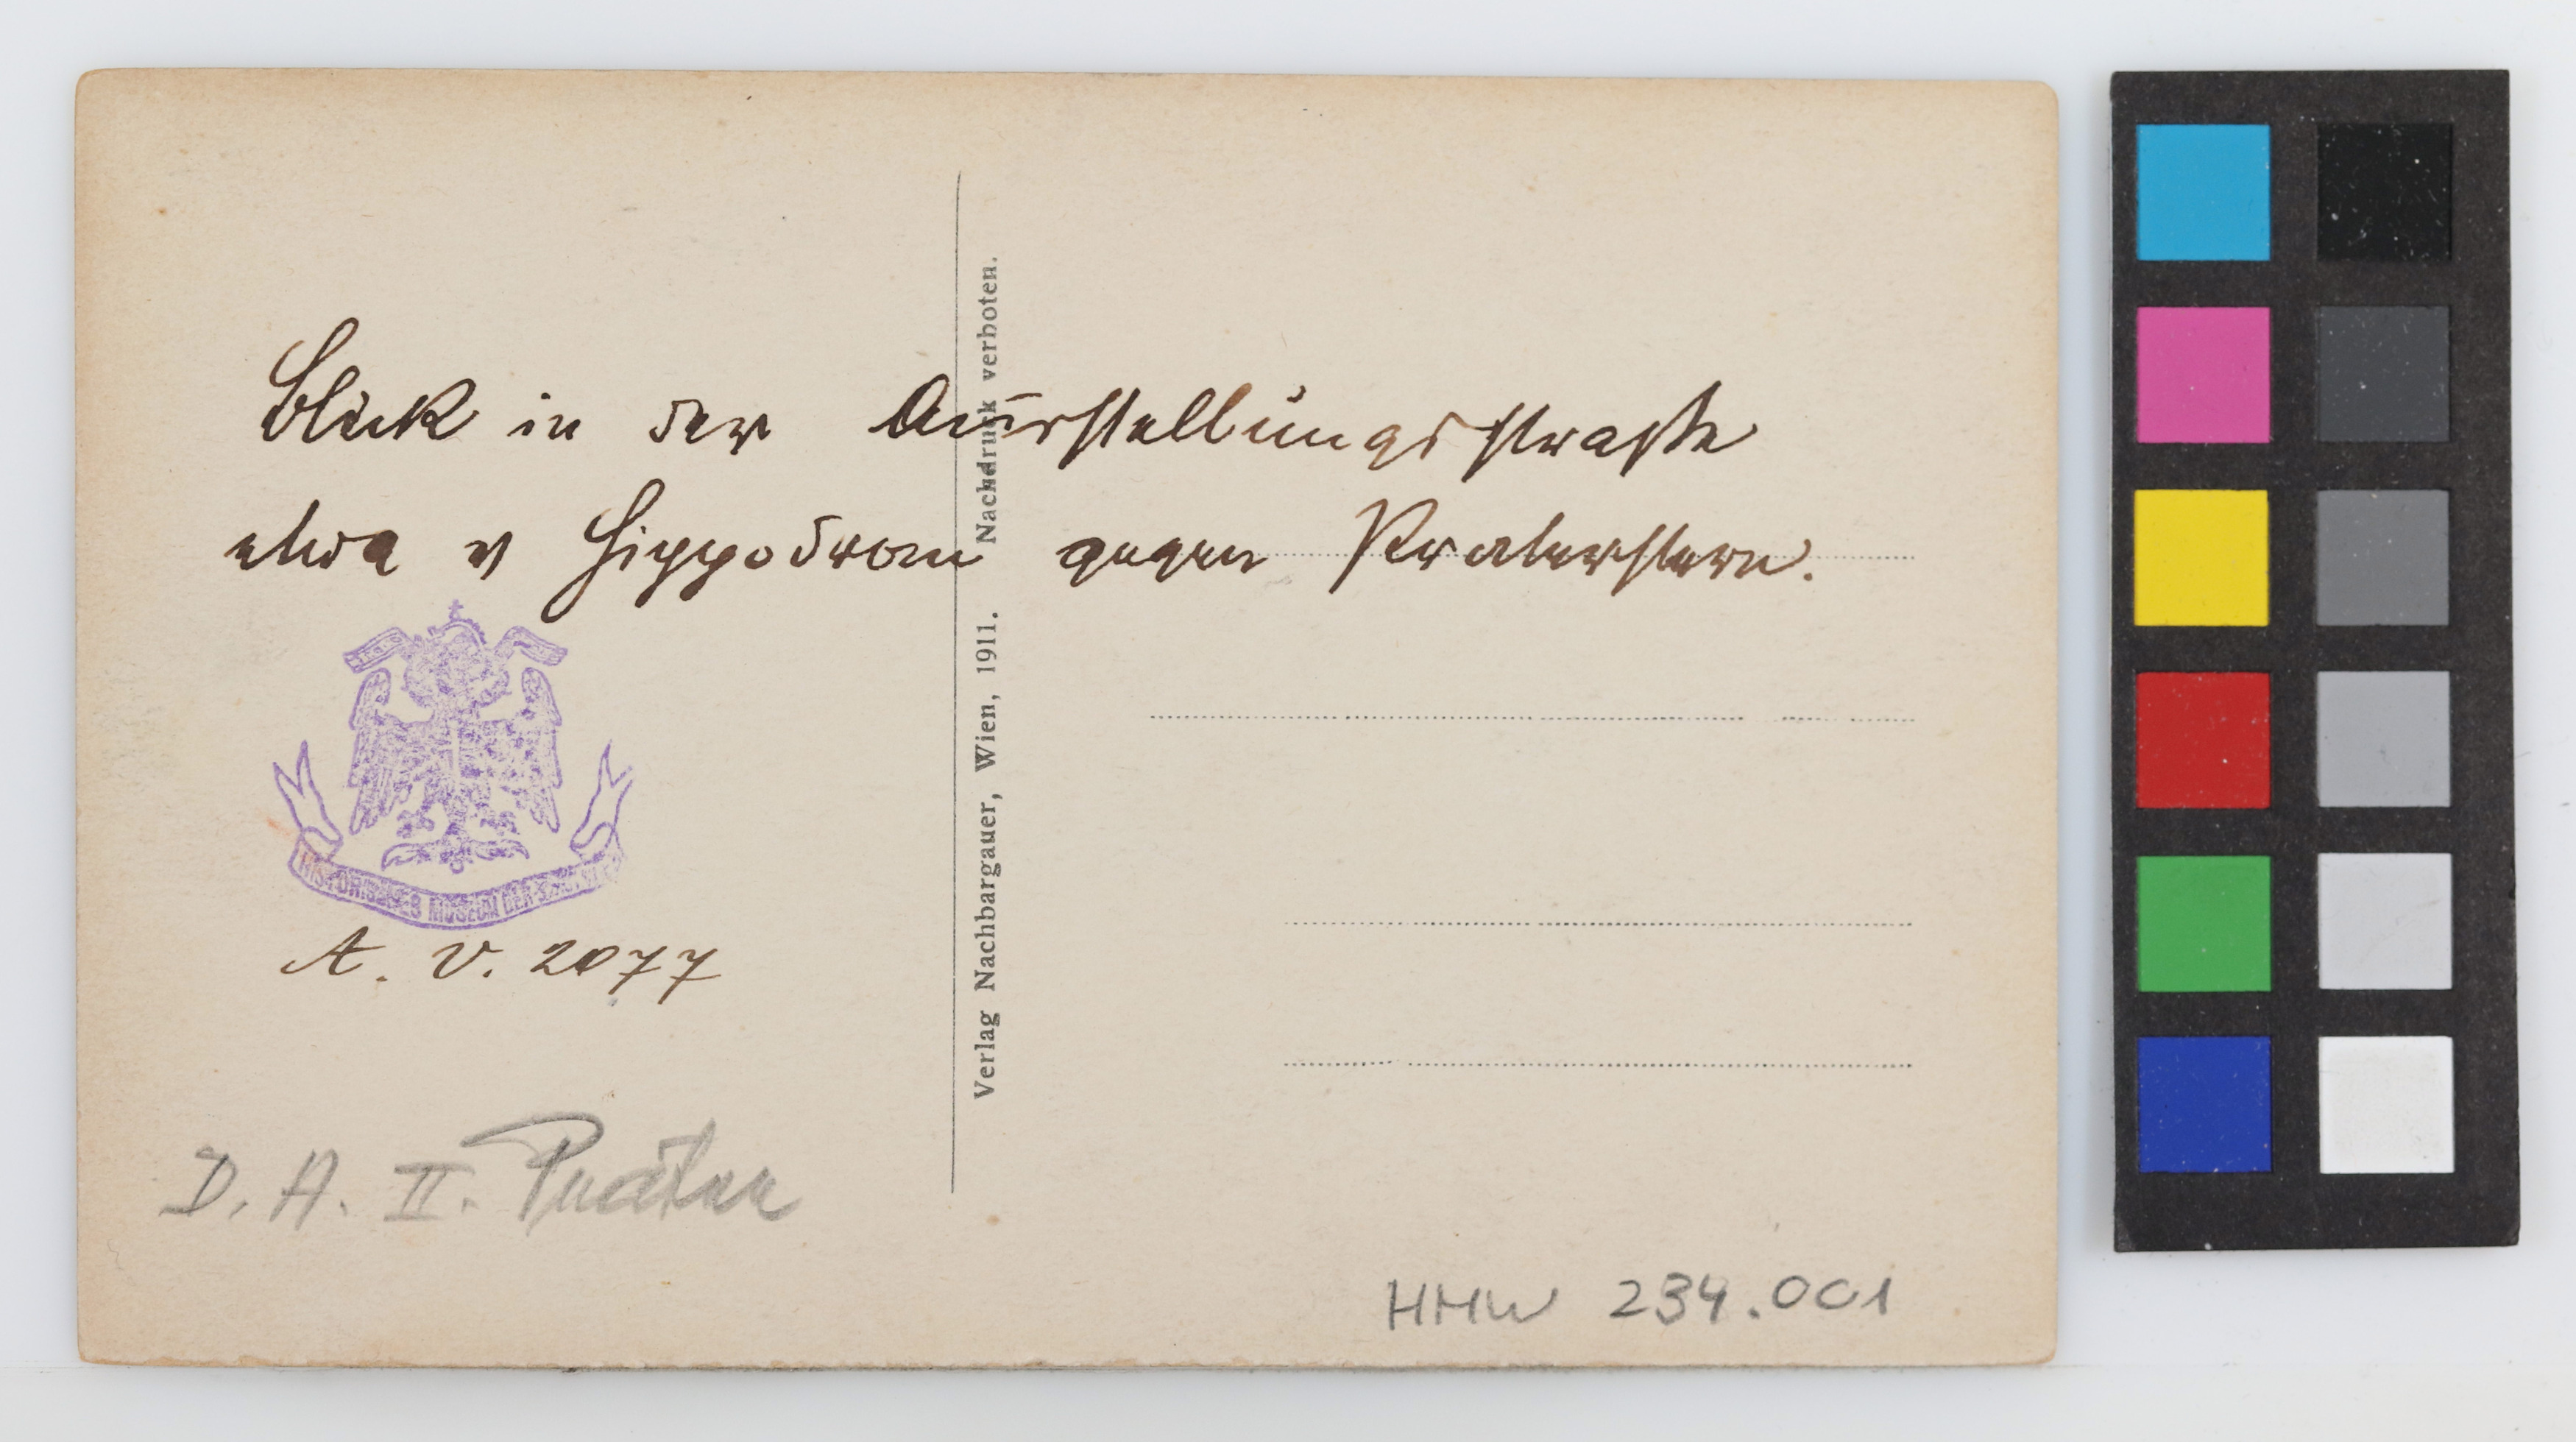 Blick in der Ausstellungsstraße
etwa v Hippodrom gegen Praterstern.
HISTORISCHES MUSEUM DER STADT
A. V. 2077
D. A. II. Prater
Verlag Nachbargauer, Wien, 1911. Nachdruck verboten.
HMW 234.001